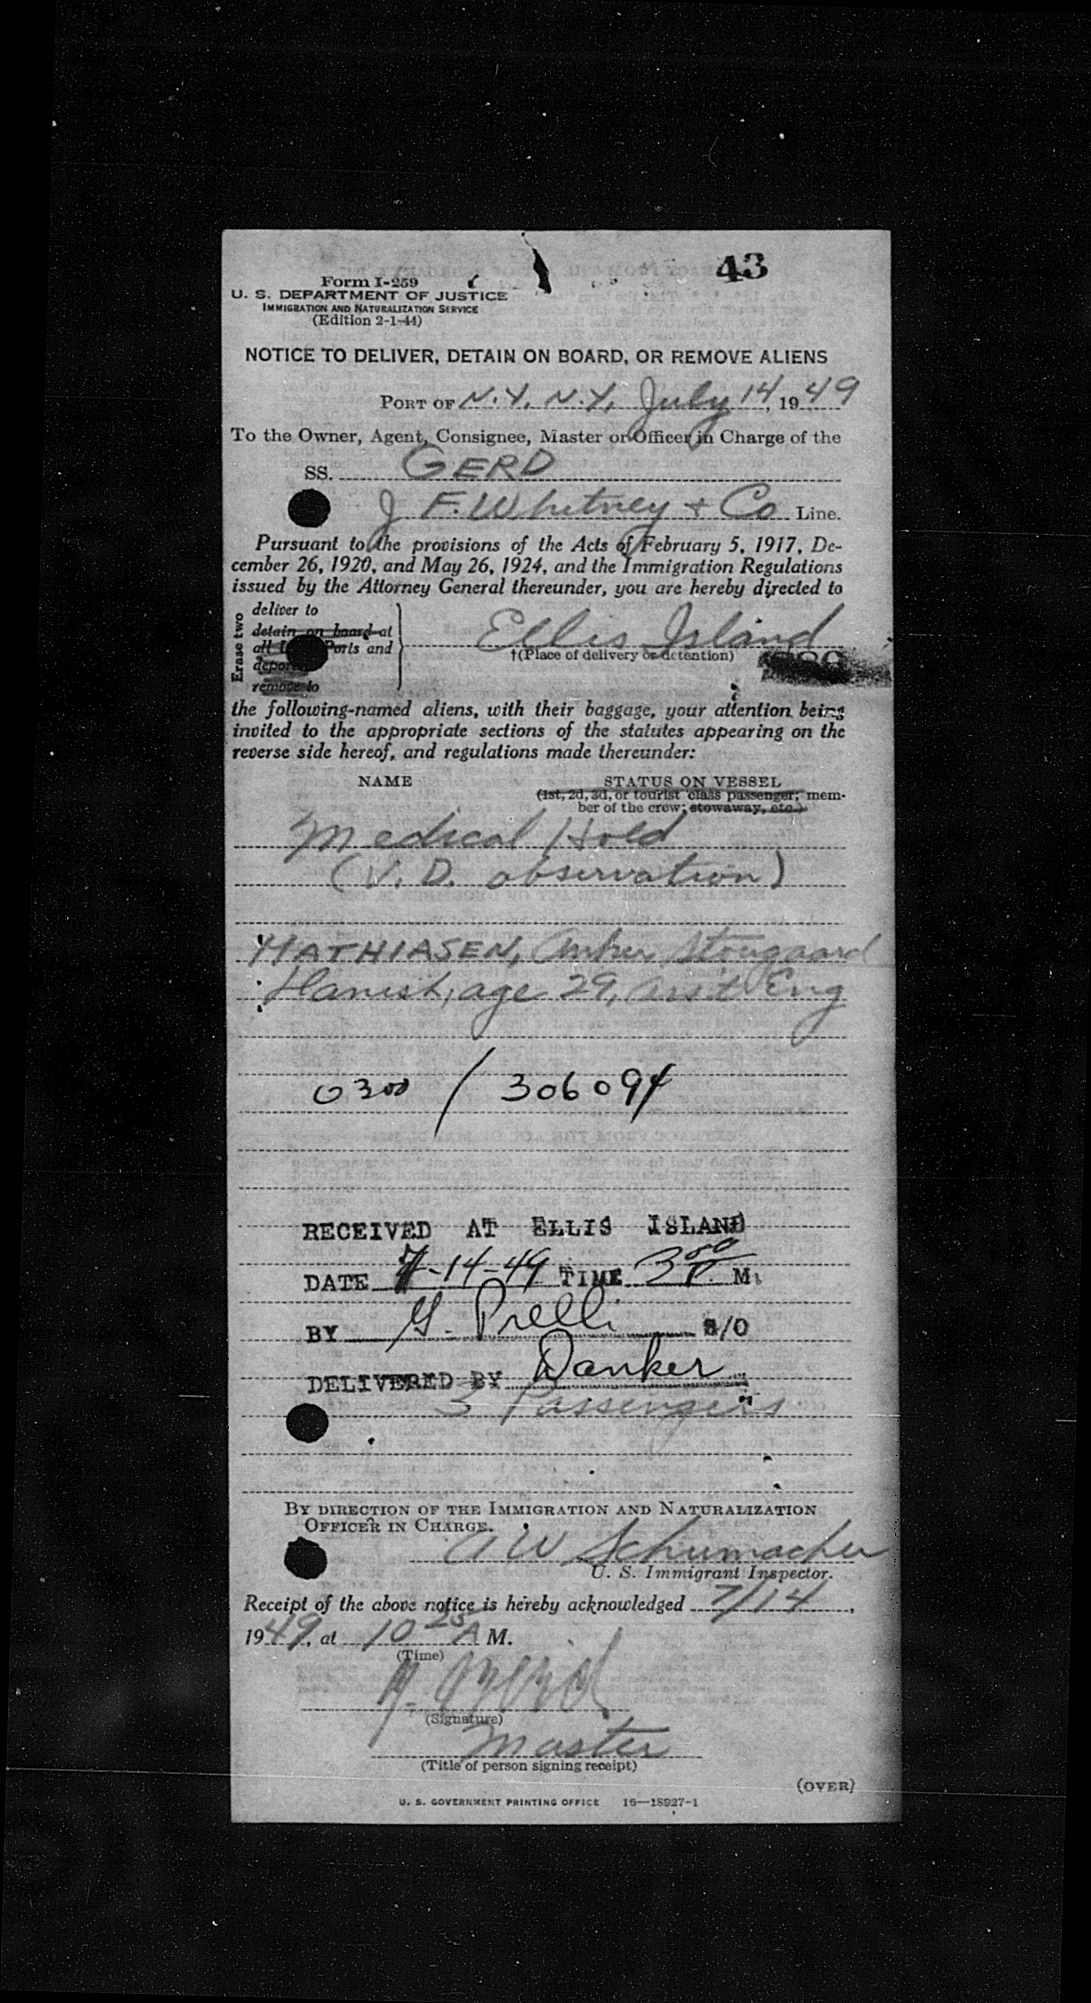 43
Form I-259
U. S. DEPARTMENT OF JUSTICE
IMMIGRATION AND NATURALIZATION SERVICE
(Edition 2-1-44)
NOTICE TO DELIVER, DETAIN ON BOARD, OR REMOVE ALIENS
PORT OF N.Y. N.Y. July 14, 1949
To the Owner, Agent, Consignee, Master or Officer in Charge of the
SS. GERD
J F. Whitney + Co Line.
Pursuant to the provisions of the Acts of February 5, 1917, De-
cember 26, 1920, and May 26, 1924, and the Immigration Regulations
issued by the Attorney General thereunder, you are hereby directed to
Erase two
deliver to
detain on board at
all Ports and
remove to
Ellis Island
†(Place of delivery or detention)
the following-named aliens, with their baggage, your attention being
invited to the appropriate sections of the statutes appearing on the
reverse side hereof, and regulations made thereunder:
NAME STATUS ON VESSEL
(1st, 2d, 3d, or tourist class passenger; mem-
ber of the crew; stowaway, etc.)
Medical Hold
(V. D. observation)
MATHIASEN, Stougaard
age 29, Eng
0300 / 306094
RECEIVED AT ELLIS ISLAND
DATE 7-14-49 TIME 3 00 P. M.
BY G. Prelli S/O
DELIVERED BY Danker
3 Passengers
BY DIRECTION OF THE IMMIGRATION AND NATURALIZATION
OFFICER IN CHARGE.
A W Schumacher
U. S. Immigrant Inspector.
Receipt of the above notice is hereby acknowledged 7/14,
1949, at 10 25 A M.
(Time)
(Signature)
Master
(Title of person signing receipt)
(OVER)
U. S. GOVERNMENT PRINTING OFFICE 16—18927-1